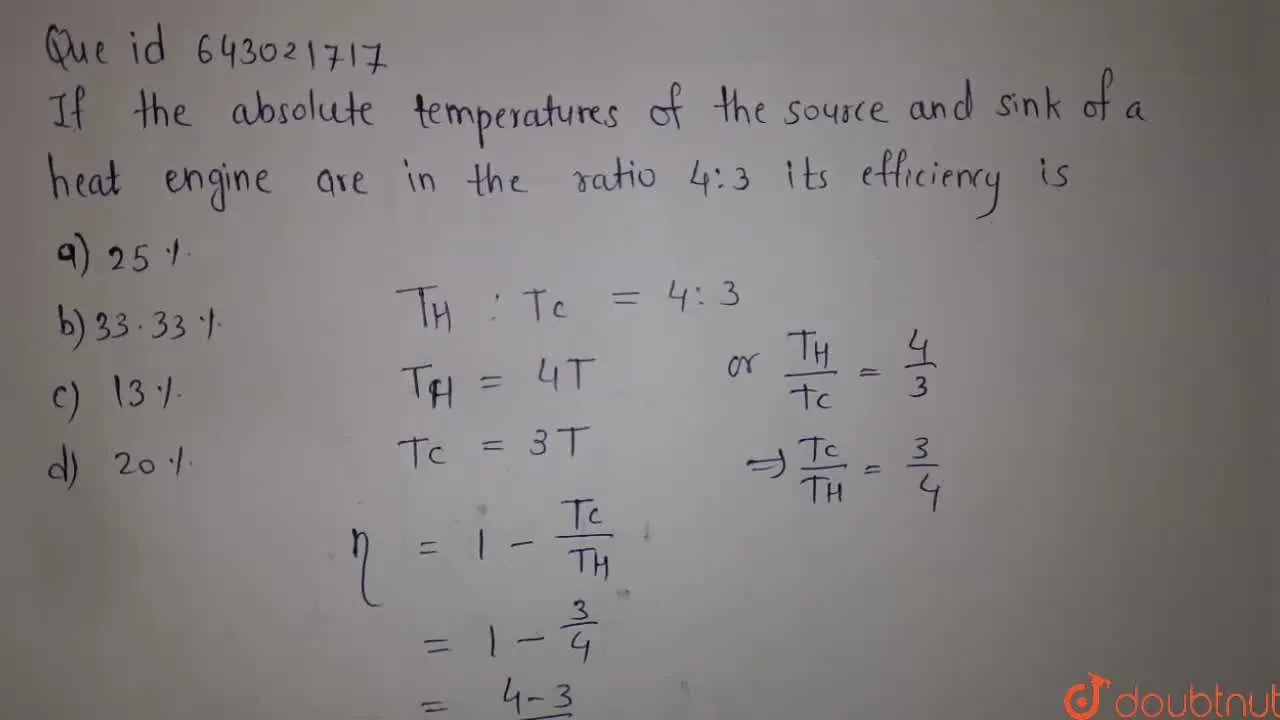 Que id 643021717
If the absolute temperatures of the source and sink of a
heat engine are in the ratio 4:3 its efficiency is
a) 25 %
b) 33.33 %
c) 13 %
d) 20 %
TH : Tc = 4:3
TH = 4T
Tc = 3T
or TH/Tc = 4/3
⇒ Tc/TH = 3/4
η = 1 - Tc/TH
= 1 - 3/4
= 4-3
doubtnut